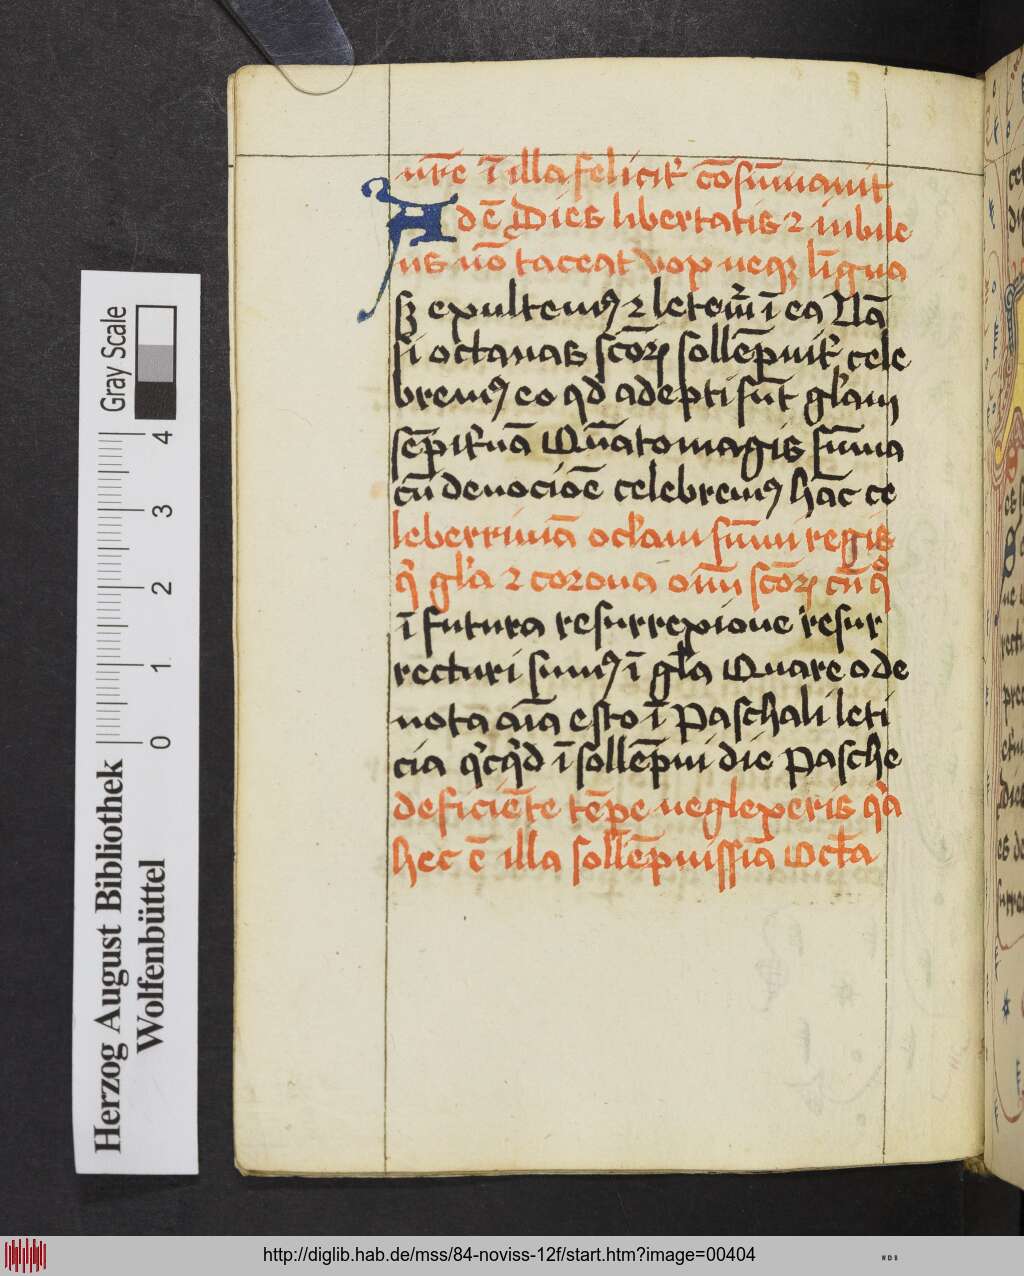 nr̄e ī illa felicit̉ cōsūmauit
Ad ē Dies libertatis ⁊ iubile
us nō taceat vox neqꝫ līgua
sꝫ exultemꝰ ⁊ letem̉ ī ea Nā
si octauas scōꝝ sollēpnit̉ cele
bremꝰ eo qd adepti sūt gl̄am
sēpit̉nā Qn̄ato magis sūma
cū deuocioē celebremꝰ hāc ce
leberrimā oct̄am sūmi regis
qͥ gl̄a ⁊ corona oīm scōꝝ cū qͦ
ī futura resurrexione resur
recturi sumꝰ ī gl̄a Quare o de
uota aīa esto ī Paschali leti
cia qͥcqͥd ī sollēpni die Pasche
deficiēte tēpe neglexeris qͥa
hec ē illa sollēpnissīa Oct̄a
Gray Scale
4
3
2
1
0
Herzog August Bibliothek
Wolfenbüttel
http://diglib.hab.de/mss/84-noviss-12f/start.htm?image=00404